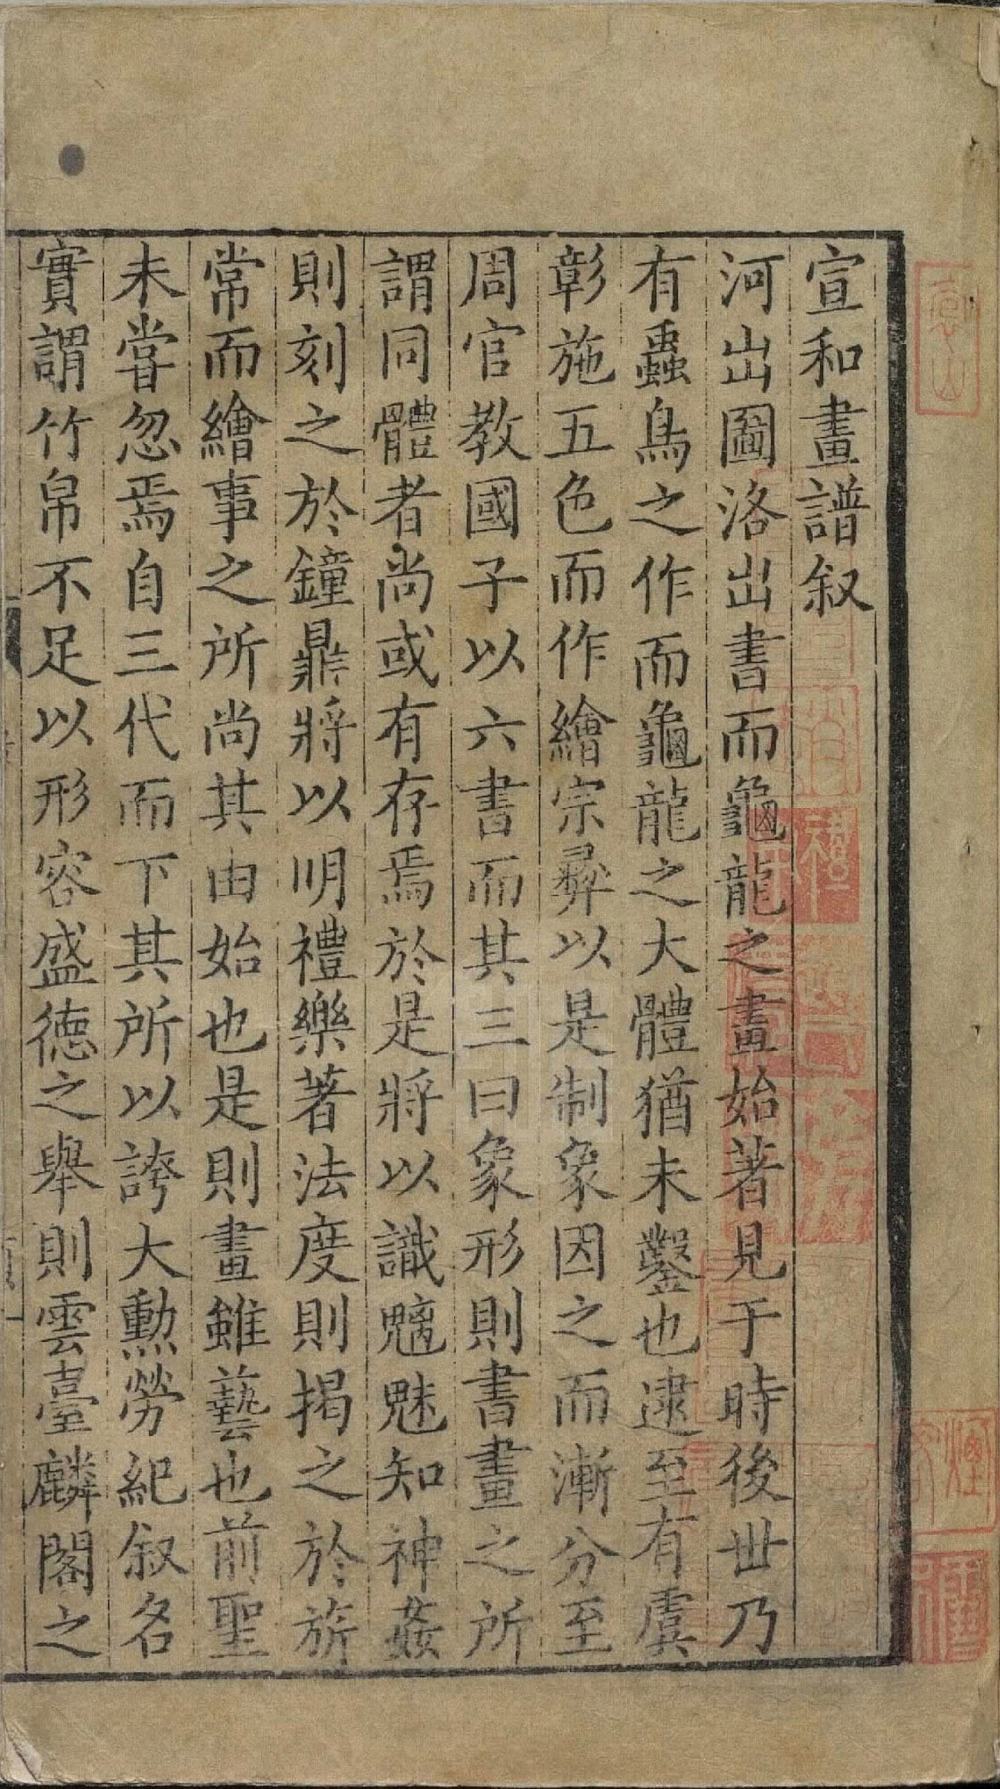 宣和畫譜叙
河出圖洛出書而龜龍之畫始著見于時後世乃
有蟲鳥之作而龜龍之大體猶未鑿也逮至有虞
彰施五色而作繪宗彛以是制象因之而漸分至
周官教國子以六書而其三曰象形則書畫之所
謂同體者尚或有存焉於是將以識魑魅知神姦
則刻之於鐘鼎將以明禮樂著法度則揭之於旂
常而繪事之所尚其由始也是則畫雖藝也前聖
未嘗忽焉自三代而下其所以誇大勲勞紀叙名
實謂竹帛不足以形容盛德之舉則雲臺麟閣之